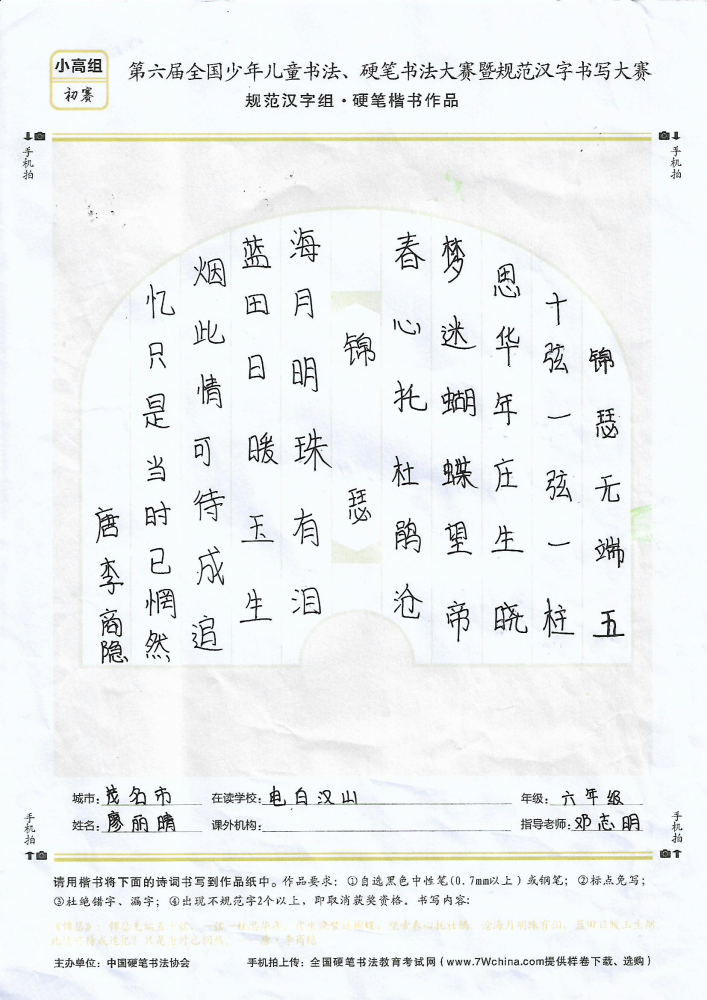 小高组
初赛
第六届全国少年儿童书法、硬笔书法大赛暨规范汉字书写大赛
规范汉字组·硬笔楷书作品
手机拍
手机拍
锦瑟无端五
十弦一弦一柱
思华年庄生晓
梦迷蝴蝶望帝
春心托杜鹃沧
锦瑟
海月明珠有泪
蓝田日暖玉生
烟此情可待成追
忆只是当时已惘然
唐李商隐
城市：茂名市 在读学校：电白汉山 年级：六年级
姓名：廖丽晴 课外机构： 指导老师：邓志明
手机拍
手机拍
请用楷书将下面的诗词书写到作品纸中。作品要求：①自选黑色中性笔(0.7mm以上)或钢笔；②标点免写；
③杜绝错字、漏字；④出现不规范字2个以上，即取消获奖资格。书写内容：
主办单位：中国硬笔书法协会 手机拍上传：全国硬笔书法教育考试网（www.7Wchina.com提供样卷下载、选购）